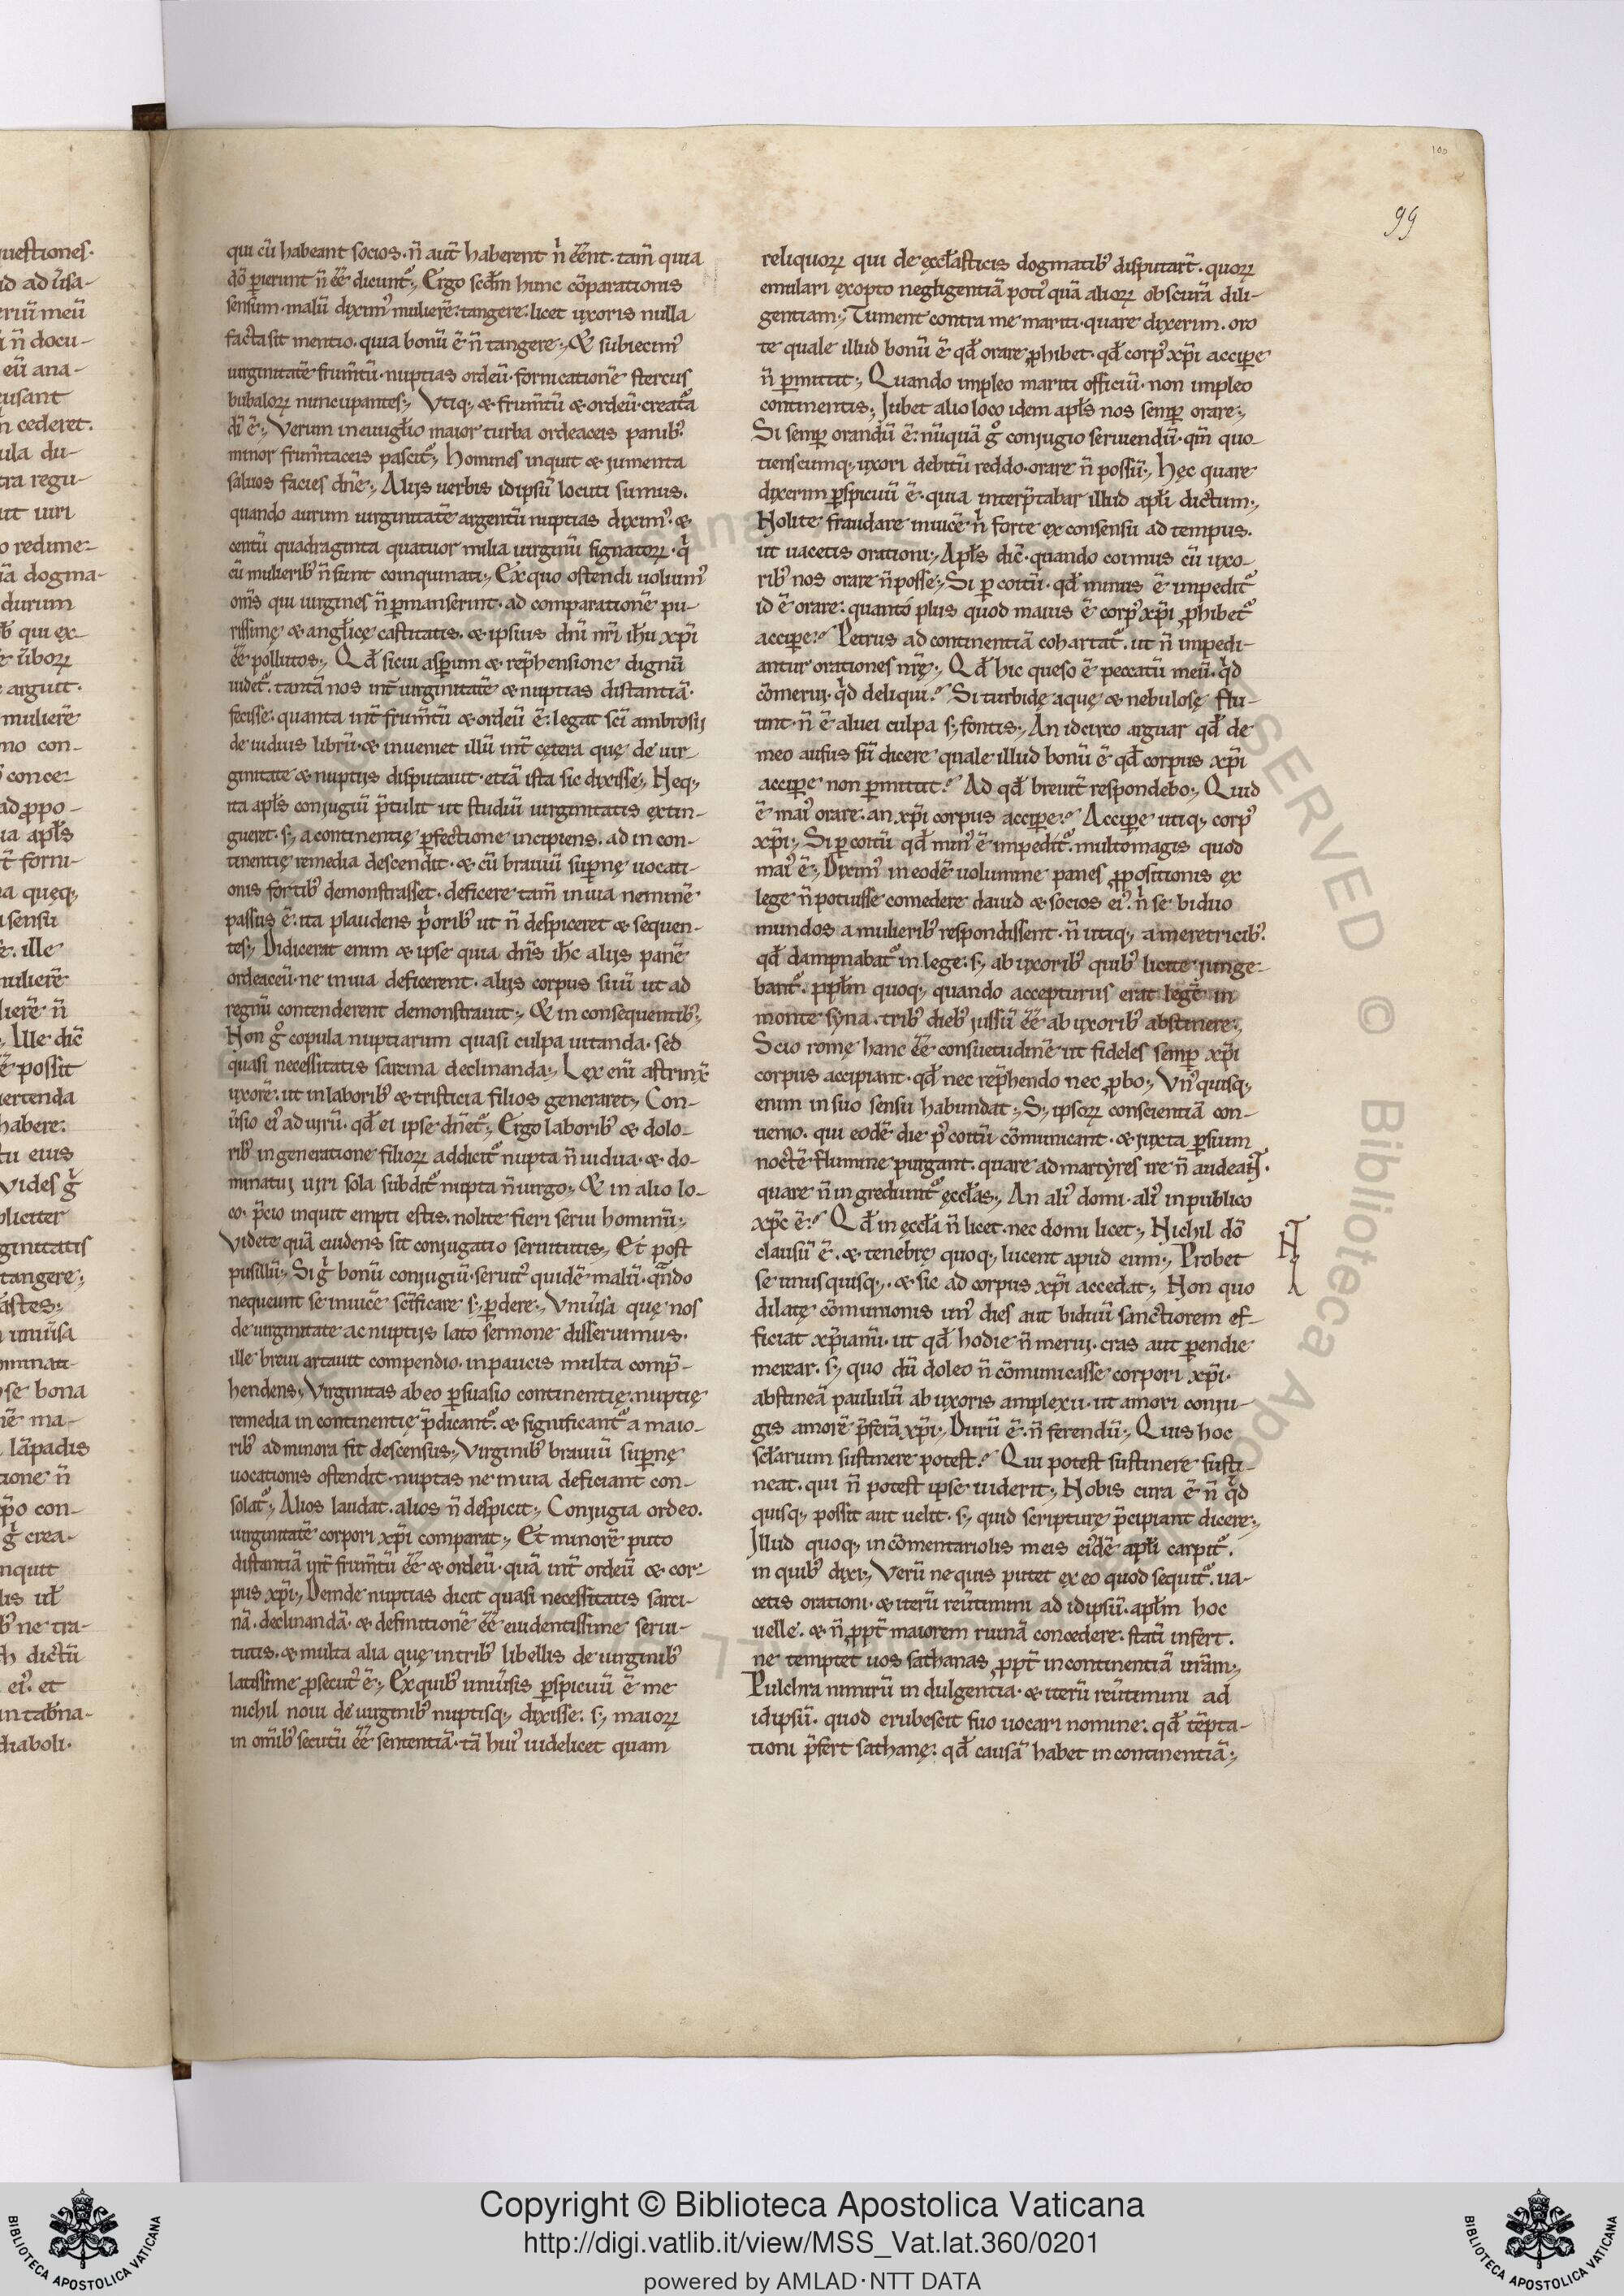 100
99
qui cũ habeant socios. ñ aut̃ haberent ñ ẽẽnt. tam̃ quia
dõ perierunt ñ ẽẽ dicunt᷑. Ergo scd̃m hunc cõparationis
sensum. malũ dixim᷒ mulierẽ tangere. licet uxoris nulla
facta sit mentio. quia bonũ ẽ ñ tangere. & subiecim᷒
uirginitatẽ frum̃tũ. nuptias ordeũ. fornicationẽ stercus
bubaloꝝ nuncupantes. Vtiq; & frum̃tũ & ordeũ creat̃a
dĩ ẽ. Verum in euuĩglio maior turba ordeaceis panib᷒.
minor frum̃taceis pascit᷑. Homines inquit & jumenta
saluos facies dñe. Alijs uerbis idipsũ locuti sumus.
quando aurum uirginitatẽ argentũ nuptias dixim᷒. &
centũ quadraginta quatuor milia uirginũ signatoꝝ. q̃
cũ mulierib᷒ ñ sunt coinquinati. Ex quo ostendi uolum᷒
om̃s qui uirgines ñ ꝑmanserint. ad comparationẽ pu-
rissimę & anglicę castitatis. & ipsius dñi nr̃i ih̃u xp̃i
ẽẽ pollutos. Qđ sicui asꝑum & rep̃hensione dignũ
uidet᷑. tantã nos int̃ uirginitatẽ & nuptias distantiã.
fecisse. quanta int̃ frum̃tũ & ordeũ ẽ. legat sc̃i ambrosij
de uiduis librũ. & inueniet illũ int̃ cętera quę de uir-
ginitate & nuptijs disputauit. etiã ista sic dixisse. Neq;
ita apl̃s conjugiũ p̃tulit ut studiũ uirginitatis extin-
gueret. s; a continentię ꝑfectione incipiens. ad in con-
tinentię remedia descendit. & cũ brauiũ suꝑnę uocati-
onis fortib᷒ demonstrasset. deficere tam̃ in uia neminẽ
passus ẽ. ita plaudens p̃orib᷒ ut ñ despiceret & sequen-
tes. Didicerat enim & ipse quia dñs ih̃c alijs panẽ
ordeaceũ. ne in uia deficerent. alijs corpus suũ ut ad
regnũ contenderent demonstrauit. & in consequentib᷒.
Non g̊ copula nuptiarum quasi culpa uitanda. sed
quasi necessitatis sarcina declinanda. Lex em̃ astrinx̃
uxorẽ. ut in laborib᷒ & tristicia filios generaret. Con-
ũsio ei᷒ ad uirũ. qđ ei ipse dñet᷑. Ergo laborib᷒ & dolo-
rib᷒ in generatione filioꝝ addicit᷑ nupta ñ uidua. & do-
minatui uiri sola subdit᷑ nupta ñ uirgo. & in alio lo-
co. p̃cio inquit empti estis. nolite fieri serui hominũ.
Videte quã euidens sit conjugatio seruitutis. Et post
pusillũ. Si g̊ bonũ conjugiũ. seruit᷒ quidẽ malũ. qñdo
nequeunt se inuicẽ sc̃ificare s; ꝑdere. Vniũsa quę nos
de uirginitate ac nuptijs lato sermone disseruimus.
ille breui artauit compendio. in paucis multa comp̃-
hendens. Virginitas ab eo ꝑsuasio continentię. nuptię
remedia in continentię p̃dicant᷑. & significant᷑ a maio-
rib᷒ ad minora fit descensus. Virginib᷒ brauiũ suꝑnę
uocationis ostendit. nuptas ne in uia deficiant con-
solat᷑. Alios laudat. alios ñ despicit. Conjugia ordeo.
uirginitatẽ corpori xp̃i comparat. Et minorẽ puto
distantiã int̃ frum̃tũ ẽẽ & ordeũ. quã int̃ ordeũ & cor-
pus xp̃i. Deinde nuptias dicit quasi necessitatis sarci-
nã. declinandã. & definitionẽ ẽẽ euidentissimẽ serui-
tutis. & multa alia quę in trib᷒ libellis de uirginib᷒
latissime ꝓsecut᷒ ẽ. Ex quib᷒ uniũsis ꝑspicuũ ẽ me
nichil noui de uirginib᷒ nuptisq; dixisse. s; maioꝝ
in om̃ib᷒ secutũ ẽẽ sententiã. tã hui᷒ uidelicet quam
reliquoꝝ qui de ęccl̃asticis dogmatib᷒ disputar̃t. quoꝝ
emulari exopto negligentiã poti᷒ quã alioꝝ obscurã dili-
gentiam. Tument contra me mariti. quare dixerim. oro
te quale illud bonũ ẽ qđ orare ꝓhibet. qđ corp᷒ xp̃i acciꝑe
ñ ꝑmittit. Quando impleo mariti officiũ. non impleo
continentis. Jubet alio loco idem apl̃s nos semꝑ orare.
Si semꝑ orandũ ẽ. nũquã g̊ conjugio seruiendũ. qm̃ quo-
tienscumq; uxori debitũ reddo. orare ñ possũ. Hęc quare
dixerim ꝑspicuũ ẽ. quia interp̃tabar illud apl̃i dictum.
Nolite fraudare inuicẽ ñ forte ex consensu ad tempus.
ut uacetis orationi. Apl̃s dic̃. quando coimus cũ uxo-
rib᷒ nos orare ñ posse. Si ꝑ coitũ. qđ minus ẽ impedit᷑
id ẽ orare. quantó plus quod maius ẽ corp᷒ xp̃i ꝓhibet᷑
acciꝑe? Petrus ad continentiã cohartat᷑. ut ñ impedi-
antur orationes nr̃ę. Qđ hic queso ẽ peccatũ meũ. q̃d
cõmerui. q̃d deliqui? Si turbidę aquę & nebulosę flu-
unt. ñ ẽ aluei culpa s; fontis. An idcirco arguar qđ de
meo ausus sũ dicere quale illud bonũ ẽ qđ corpus xp̃i
acciꝑe non ꝑmittit? Ad qđ breuit̃ respondebo. Quid
ẽ mai᷒ orare. an xp̃i corpus acciꝑe? Acciꝑe utiq; corp᷒
xp̃i. Si ꝑ coitũ qđ min᷒ ẽ impedit᷑. multomagis quod
mai᷒ ẽ. Dixim᷒ in eodẽ uolumine panes ꝓpositionis ex
lege ñ potuisse comedere dauid & socios ei᷒. ñ se biduo
mundos a mulierib᷒ respondissent. ñ utiq; a meretricib᷒.
qđ dampnabat᷑ in lege. s; ab uxorib᷒ quib᷒ licite junge-
bant᷑. ppl̃m quoq; quando accepturus erat legẽ in
monte syna. trib᷒ dieb᷒ jussũ ẽẽ ab uxorib᷒ abstinere.
Scio romę hanc ẽẽ consuetudinẽ ut fideles semꝑ xp̃i
corpus accipiant. qđ nec rep̃hendo nec ꝓbo. Vn᷒quisq;
enim in suo sensu habundat. S; ipsoꝝ conscientiã con-
uenio. qui eodẽ die p᷒ coitũ cõmunicant. & juxta ꝑsium
noctẽ flumine purgant. quare ad martyres ire ñ audeat̃.
quare ñ in grediunt᷑ ęccl̃as. An ali᷒ domi. ali᷒ in publico
xp̃c ẽ? Qđ in ęccl̃a ñ licet. nec domi licet. Nichil dõ
clausũ ẽ. & tenebrę quoq; lucent apud eum. Probet
se unusquisq;. & sic ad corpus xp̃i accedat. Non quo
dilatę cõmunionis un᷒ dies aut biduũ sanctiorem ef-
ficiat xp̃ianũ. ut qđ hodie ñ merui. cras aut ꝑendie
merear. s; quo dũ doleo ñ cõmunicasse corpori xp̃i.
abstineã paululũ ab uxoris amplexu. ut amori conju-
gis amorẽ p̃ferã xp̃i. Durũ ẽ. ñ ferendũ. Quis hoc
scl̃arium sustinere potest? Qui potest sustinere susti-
neat. qui ñ potest ipse uiderit. Nobis cura ẽ ñ q̃d
quisq; possit aut uelit. s; quid scripturę p̃cipiant dicere.
Illud quoq; in cõmentariolis meis ei᷒dẽ apl̃i carpit᷑.
in quib᷒ dixi. Verũ ne quis putet ex eo quod sequit᷑. ua-
cetis orationi. & iterũ reũtimini ad idipsũ. apl̃m hoc
uelle. & ñ ꝓpt̃ maiorem ruinã concedere. stati infert.
ne temptet uos sathanas ꝓpt̃ incontinentiã ur̃am.
Pulchra nimirũ in dulgentia. & iterũ reũtimini ad
idipsũ. quod erubescit suo uocari nomine. qđ tẽpta-
tioni p̃fert sathanę. qđ causã habet in continentiã.
Copyright © Biblioteca Apostolica Vaticana
http://digi.vatlib.it/view/MSS_Vat.lat.360/0201
powered by AMLAD·NTT DATA
BIBLIOTECA APOSTOLICA VATICANA
BIBLIOTECA APOSTOLICA VATICANA